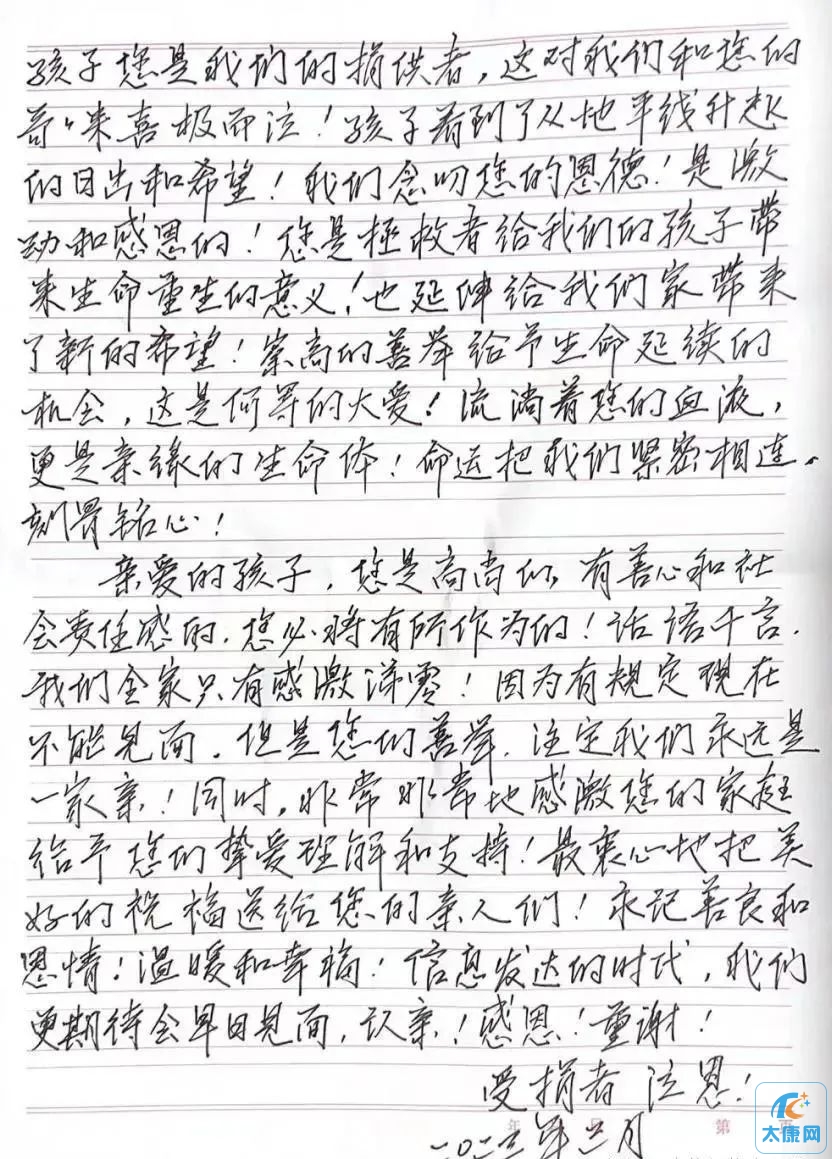 孩子您是我们的捐供者，这对我们和您的
哥哥来喜极而泣！孩子看到了从地平线升起
的日出和希望！我们念叨您的恩德！是激
动和感恩的！您是拯救者给我们的孩子带
来生命重生的意义！也延伸给我们家带来
了新的希望！崇高的善举给予生命延续的
机会，这是何等的大爱！流淌着您的血液，
更是亲缘的生命体！命运把我们紧密相连。
刻骨铭心！
亲爱的孩子，您是高尚的，有善心和社
会责任感的，您必将有所作为的！话语千言，
我们全家只有感激涕零！因为有规定现在
不能见面，但是您的善举，注定我们永远是
一家亲！同时，非常非常地感激您的家庭
给予您的挚爱理解和支持！最衷心地把美
好的祝福送给您的亲人们！永记善良和
恩情！温暖和幸福！信息发达的时代，我们
更期待会早日见面，认亲！感恩！重谢！
受捐者 泣恩！
年 月 第 页
二〇二三年三月
太康网